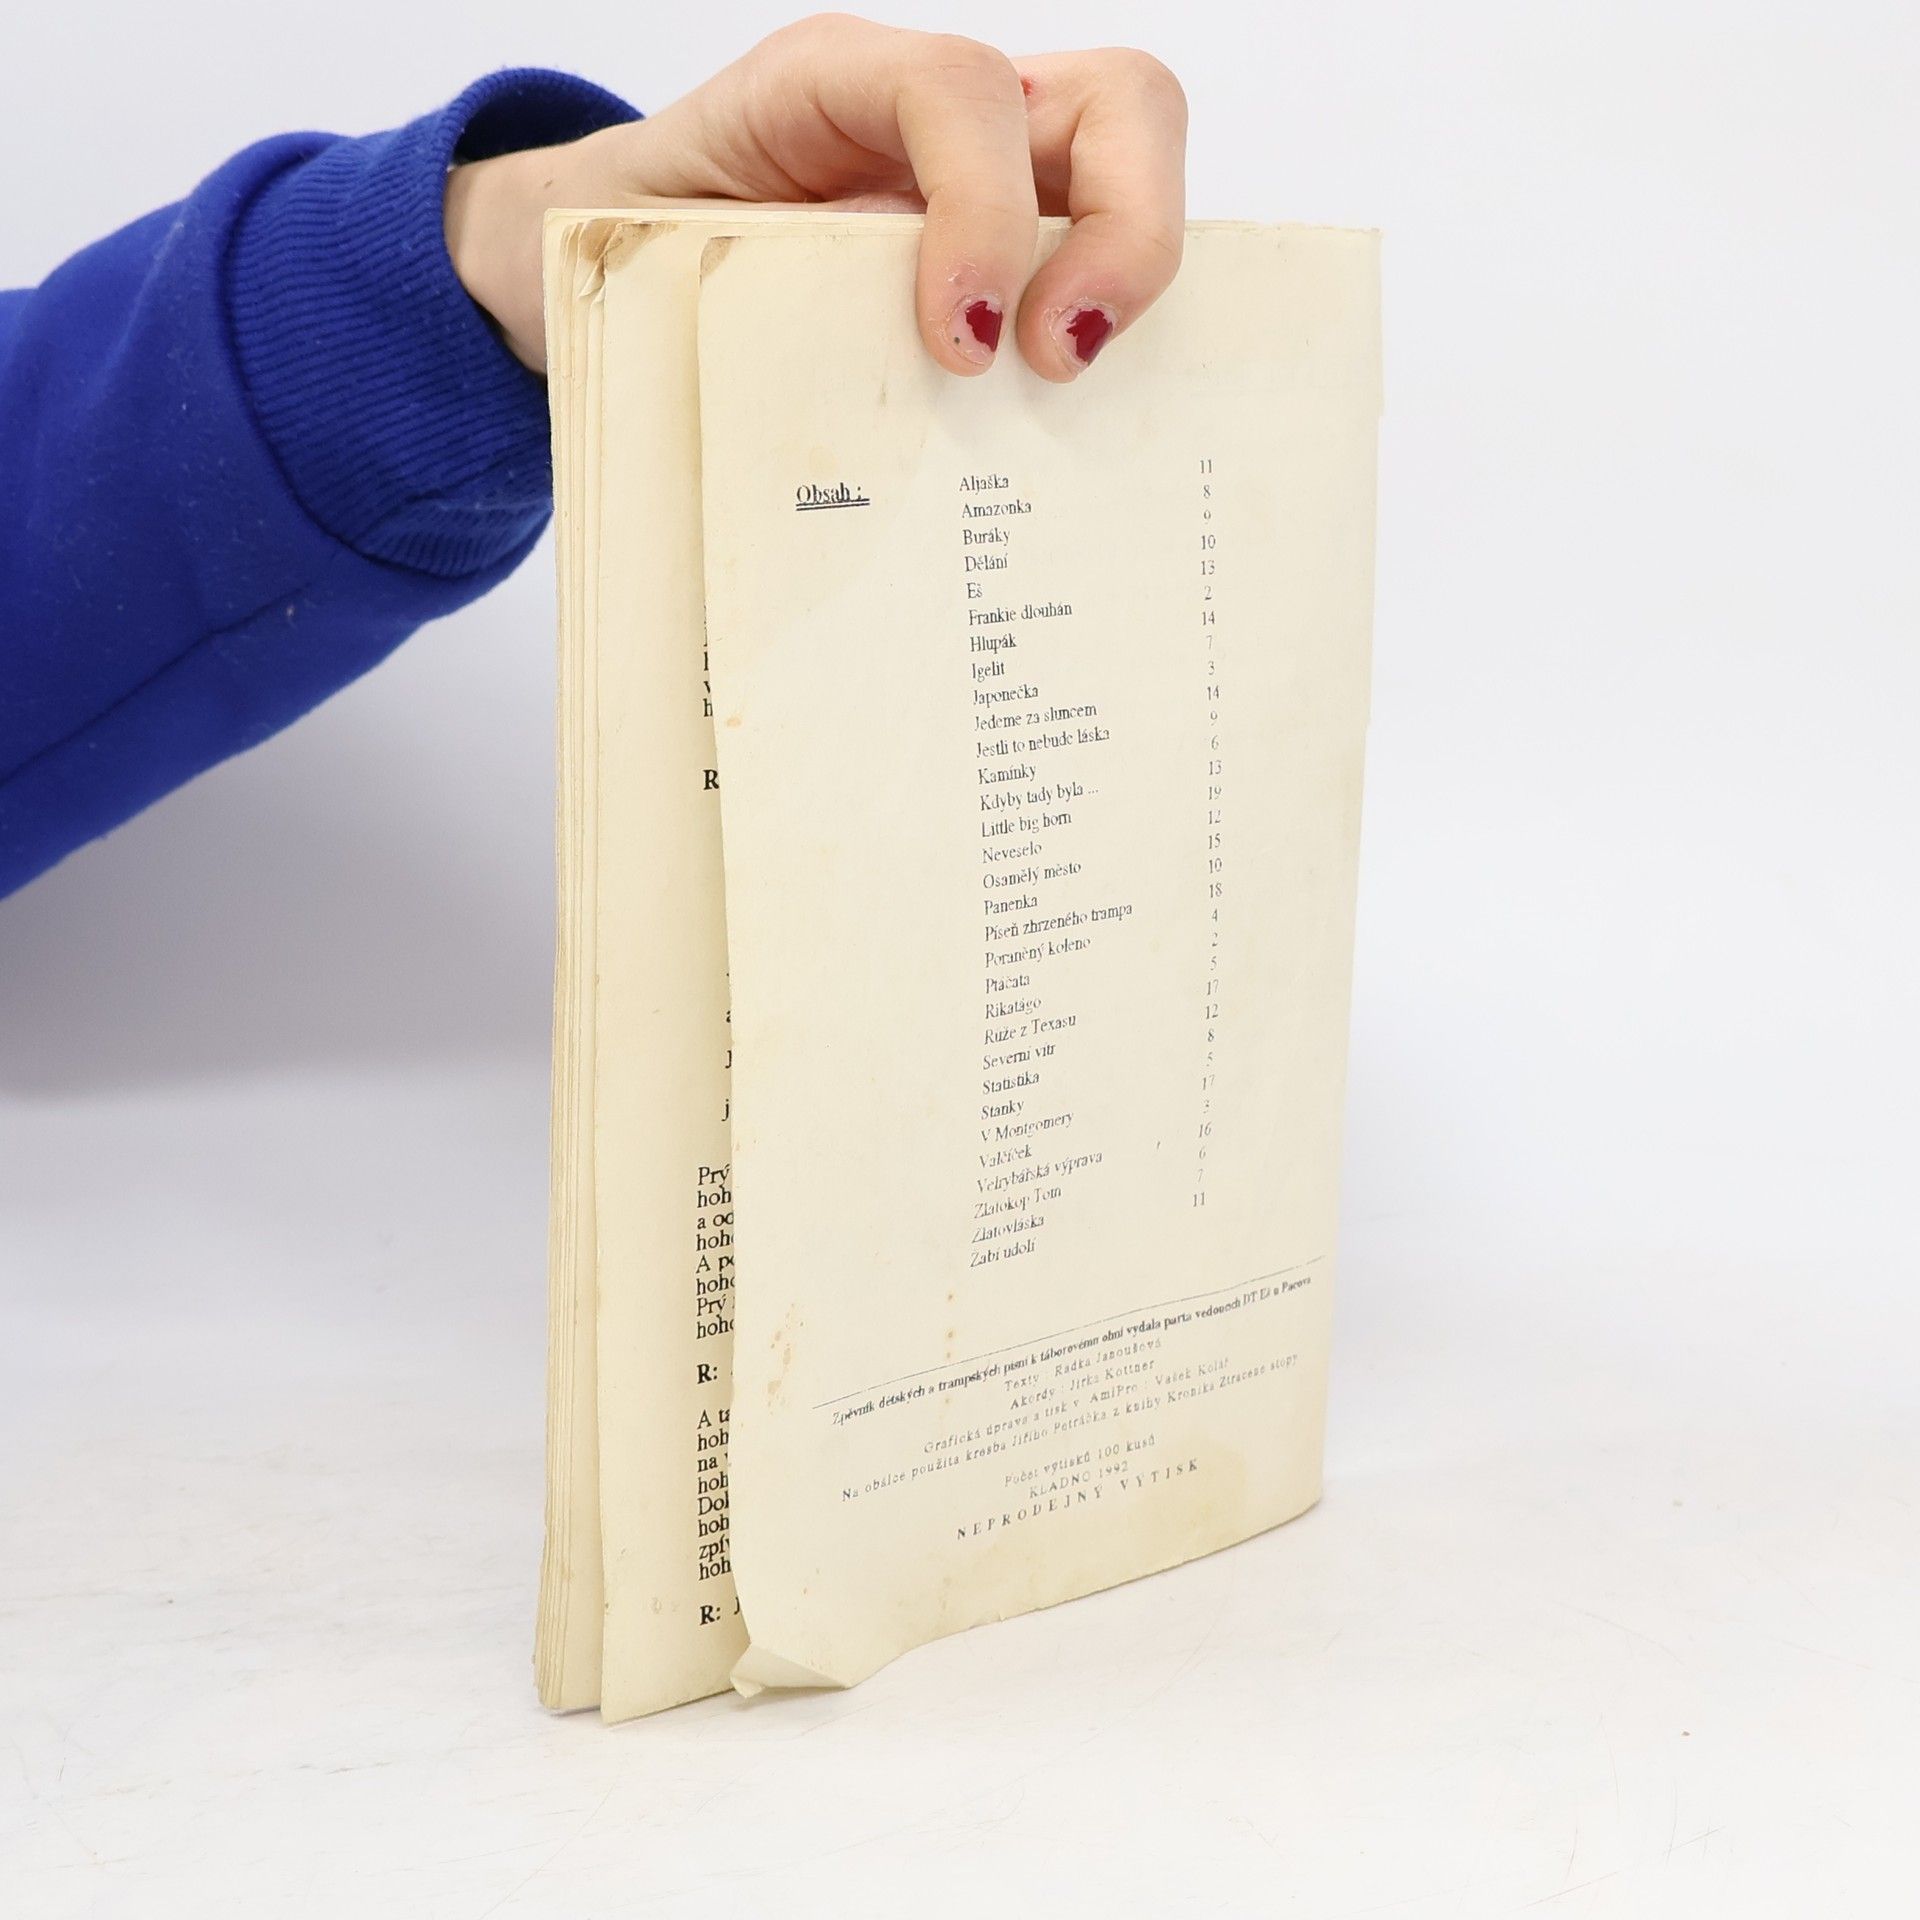 Obsah :
Aljaška 11
Amazonka 8
Buráky 9
Dělání 10
Eš 13
Frankie dlouhán 2
Hlupák 14
Igelit 7
Japonečka 3
Jedeme za sluncem 14
Jestli to nebude láska 9
Kamínky 6
Kdyby tady byla ... 13
Little big horn 19
Neveselo 12
Osamělý město 15
Panenka 10
Píseň zhrzeného trampa 18
Poraněný koleno 4
Ptáčata 2
Rikatágo 5
Růže z Texasu 17
Severní vítr 12
Statistika 8
Stanky 5
V Montgomery 17
Valčíček 3
Velrybářská výprava 16
Zlatokop Tom 6
Zlatovláska 7
Žabí udolí 11
Zpěvník dětských a trampských písní k táborovému ohni vydala parta vedoucích DT Eš u Pacova
Texty : Radka Janoušová
Akordy : Jirka Kottner
Grafická úprava a tisk v AmiPro : Vašek Kolář
Na obálce použita kresba Jiřího Petráčka z knihy Kronika Ztracené stopy
Počet výtisků 100 kusů
KLADNO 1992
NEPRODEJNÝ VÝTISK
R
Prý
hoh
a od
hoho
A po
hoho
Prý
hoho
R:
A ta
hoh
na
hoh
Dok
hoh
zpív
hoh
R: j